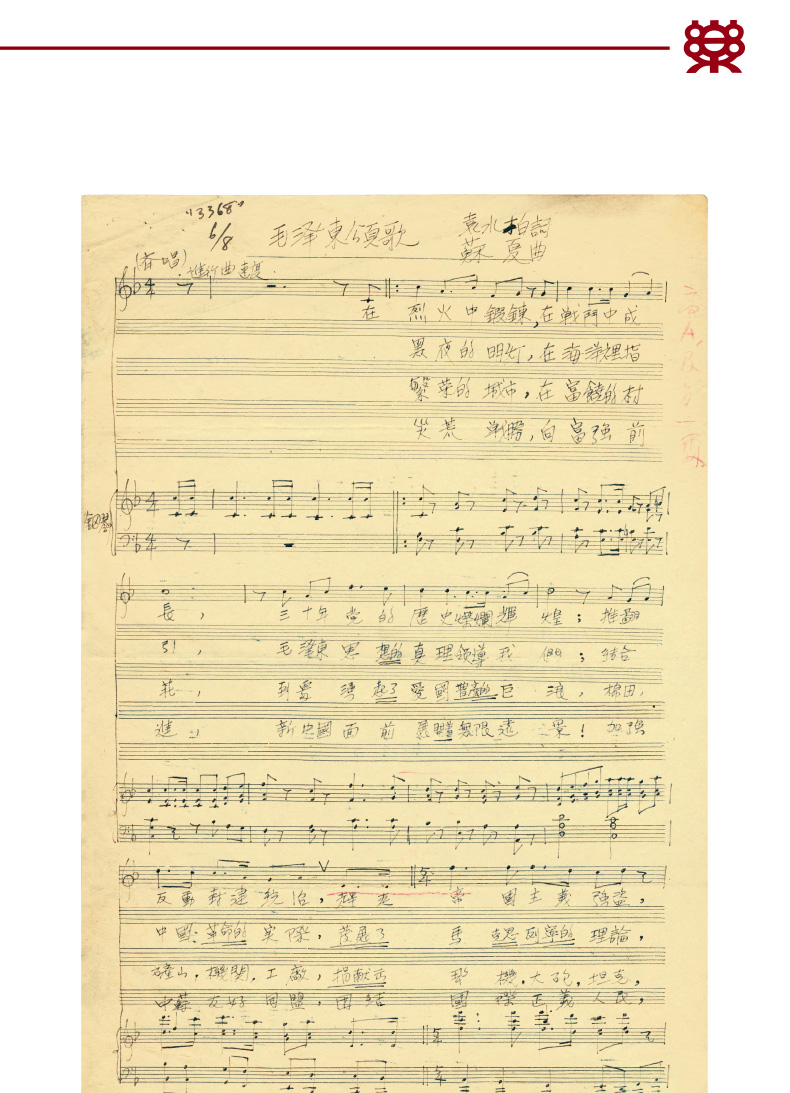 "3368"
6/8
毛泽東頌歌
袁水拍詞
蘇夏曲
(齐唱)
進行曲速度
在 烈火中鍛鍊,在战鬥中成
黑夜的明灯,在海洋裡指
繁荣的城市,在富饒的村
灾荒 向富强前
鋼琴
長, 三十年党的歷史燦爛輝煌;推翻
引, 毛澤東思想的真理領導我們;結合
花, 到處湧起了愛國 的巨浪,棉田,
進!! 新中國面前 無限遠景!加强
反動 封建統治,
中國革命的实際,發展了
礦山,機關,工廠,捐献出
中蘇友好同盟,团結
帝國主義強盜,
馬克思列寧的理論,
飛機,大砲,坦克,
國際正義人民,